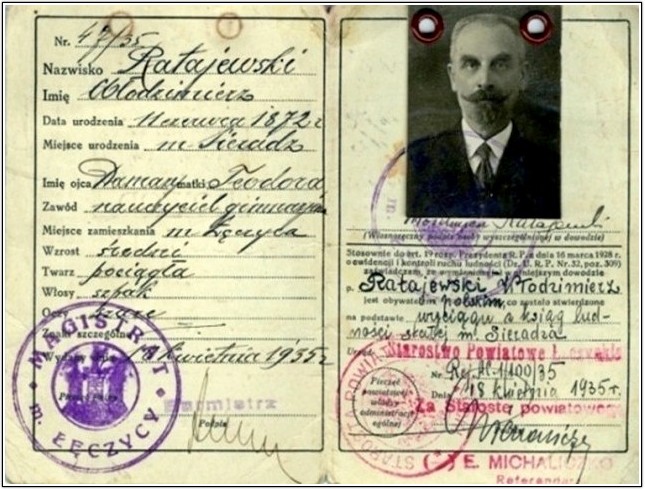 Nr. 47/35
Nazwisko Ratajewski
Imię Włodzimierz
Data urodzenia 11 czerwca 1872 r
Miejsce urodzenia m. Sieradz
Imię ojca Damazy matki Teodora
Zawód nauczyciel gimnazjum
Miejsce zamieszkania m. Łęczyca
Wzrost średni
Twarz pociągła
Włosy szpak.
Oczy szare
Znaki szczególne
Wydany dnia 18 kwietnia 1935 r
MAGISTRAT
m. ŁĘCZYCY
Burmistrz
Podpis
Włodzimierz Ratajewski
(Własnoręczny podpis osoby wyszczególnionej w dowodzie)
Stosownie do art. 19 rozp. Prezydenta R. P. z dnia 16 marca 1928 r.
o ewidencji i kontroli ruchu ludności (Dz. U. R. P. Nr. 32, poz. 309)
zaświadczam, że wymieniony w niniejszym dowodzie
p. Ratajewski Włodzimierz
jest obywatelem polskim, co zostało stwierdzone
na podstawie wyciągu z ksiąg lud-
ności stałej m. Sieradza
Urząd Starostwo Powiatowe
Nr. 1/100/35
Dnia 18 kwietnia 1935 r.
Za Starostę powiatowego
Pieczęć
powiatowej
władzy
administracji
ogólnej
STAROSTA POWIATOWY
(-) E. MICHALICZKO
Referendarz